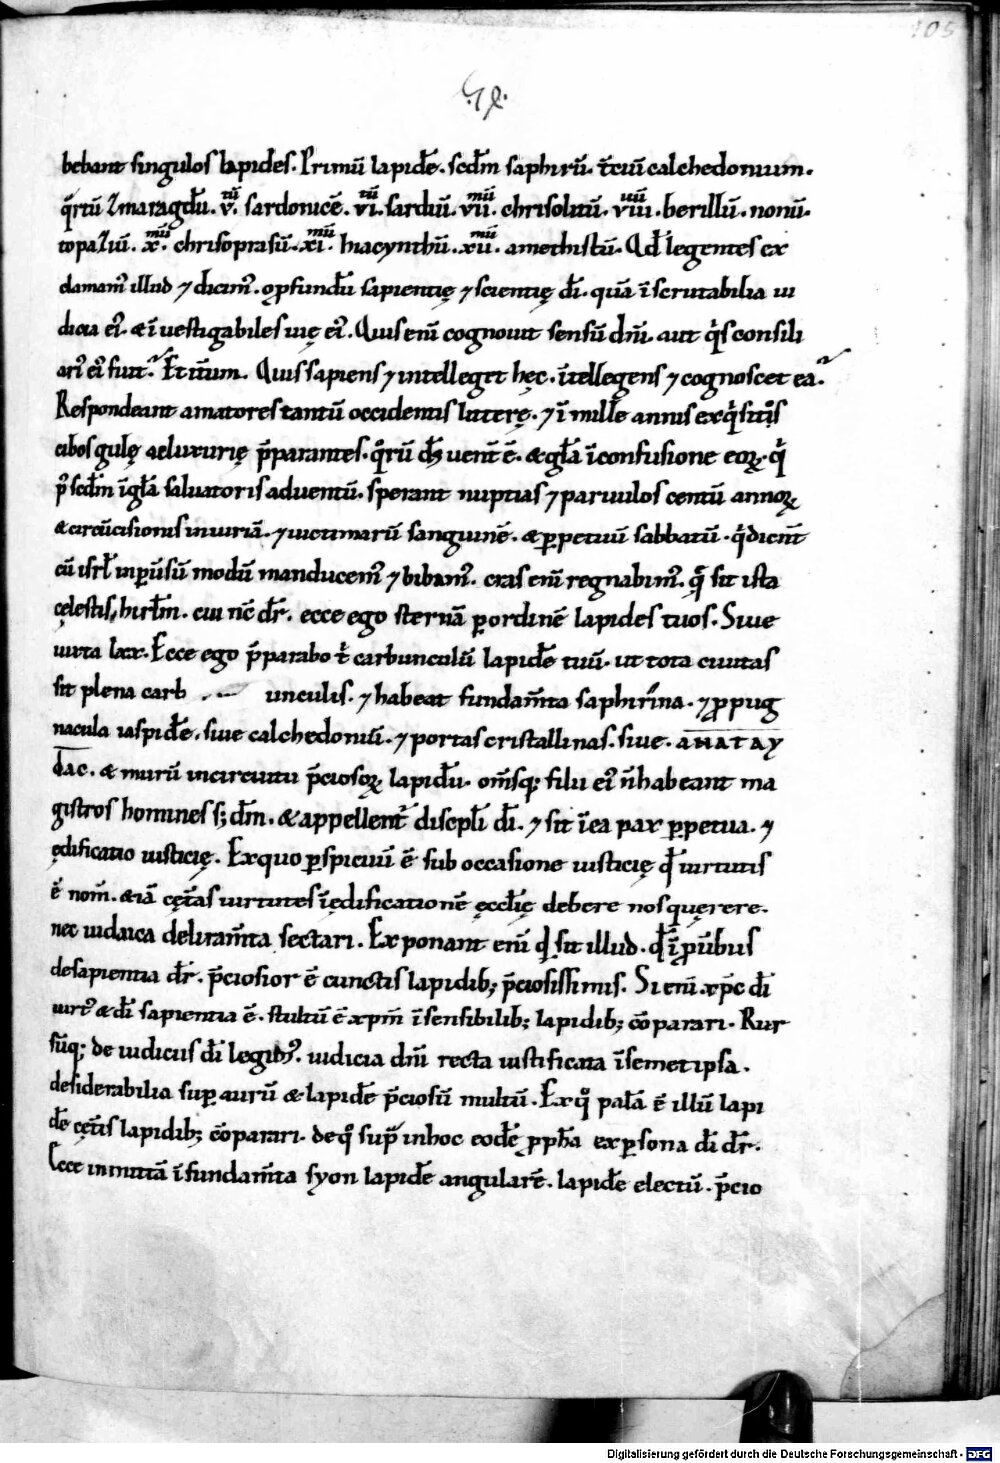 105
bebant singulos lapides. Primū lapidē. scdm̄ saphirū. t̄ciū calchedonium.
q̄rtū zmaragdū. v̄. sardonicē. vī. sardiū. vīī. chrisolitū. vīīī. berillū. nonū.
topaziū. x̄. chrisoprasū. xī. hiacynthū. xīī. amethistū. Qd̄ legentes ex
clamam᾿ illud ⁊ dicim᾿. o ꝓfundū sapientię ⁊ scientię dī. quā ī scrutabilia iu
dicia ei᾿. & ī uestigabiles uię ei᾿. Quis enī cognouit sensū dn̄i. aut q̇s consili
ari᾿ ei᾿ fuit. Et it̄um. Quis sapiens ⁊ intelleget hęc. īt̄ellegens ⁊ cognoscet ea.
Respondeant amatores tantū occidentis litterę. ⁊ ī mille annis exq̇sitos
cibos gulę ac luxurię p̄parantes. q̊rū ds̄ uent̄ ē. & gl̄a ī confusione eoꝝ. q̇
p᾿ scdm̄ ī gl̄a saluatoris aduentū. sperant nuptias ⁊ paruulos centū annoꝝ
& circūcisionis iniuriā. ⁊ uictimarū sanguinē. & ꝑpetuū sabbatū. q̇ dicent̄
cū isrl̄ in ꝑuersū modū manducem᾿ ⁊ bibam᾿. cras enī regnabim᾿. q̄ sit ista
cęlestis hirl̄m. cui nc̄ dr̄. ecce ego sternā ꝑ ordinē lapides tuos. Siue
iuxta lxx. Ecce ego p̄parabo t̄ carbunculū lapidē tuū. ut tota ciuitas
sit plena carb unculis. ⁊ habeat fundam̄ta saphirina. ⁊ ꝓpug
nacula iaspidē. siue calchedoniū. ⁊ portas cristallinas. siue.
& murū incircuitu p̄ciosoꝝ lapidū. om̄sq; filii ei᾿ n̄ habeant ma
gistros homines s; dm̄. & appellent᾿ discpl̄i dī. ⁊ sit ī ea pax ꝑpetua. ⁊
ędificatio iusticię. Exquo ꝑspicuū ē sub occasione iusticię qd̄ uirtutis
ē nom̄. & iā cęt̄as uirtutes ī ędificationē ęccl̄ię debere nos quęrere.
nec iudaica deliram̄ta sectari. Exponant enī qd̄ sit illud. qd̄ ī ꝓuerbus
de sapientia dr̄. p̄ciosior ē cunctis lapidib; p̄ciosissimis. Si enī xp̄c dī
uirt᾿ & dī sapientia ē. stultū ē xpm̄ ī sensibilib; lapidib; cōparari. Rur
sūq; de iudiciis dī legib᾿. iudicia dn̄i recta iustificata ī semetipsa.
desiderabilia suꝑ aurū & lapidē p̄ciosū multū. Exq̊ palā ē illū lapi
dē cęt̄is lapidib; cōparari. de q̊ sup̄ in hoc eodē ꝓph̄a ex ꝑsona dī dr̄.
Ecce inmittā ī fundam̄ta syon lapidē angularē. lapidē electū. p̄cio
Digitalisierung gefördert durch die Deutsche Forschungsgemeinschaft - DFG